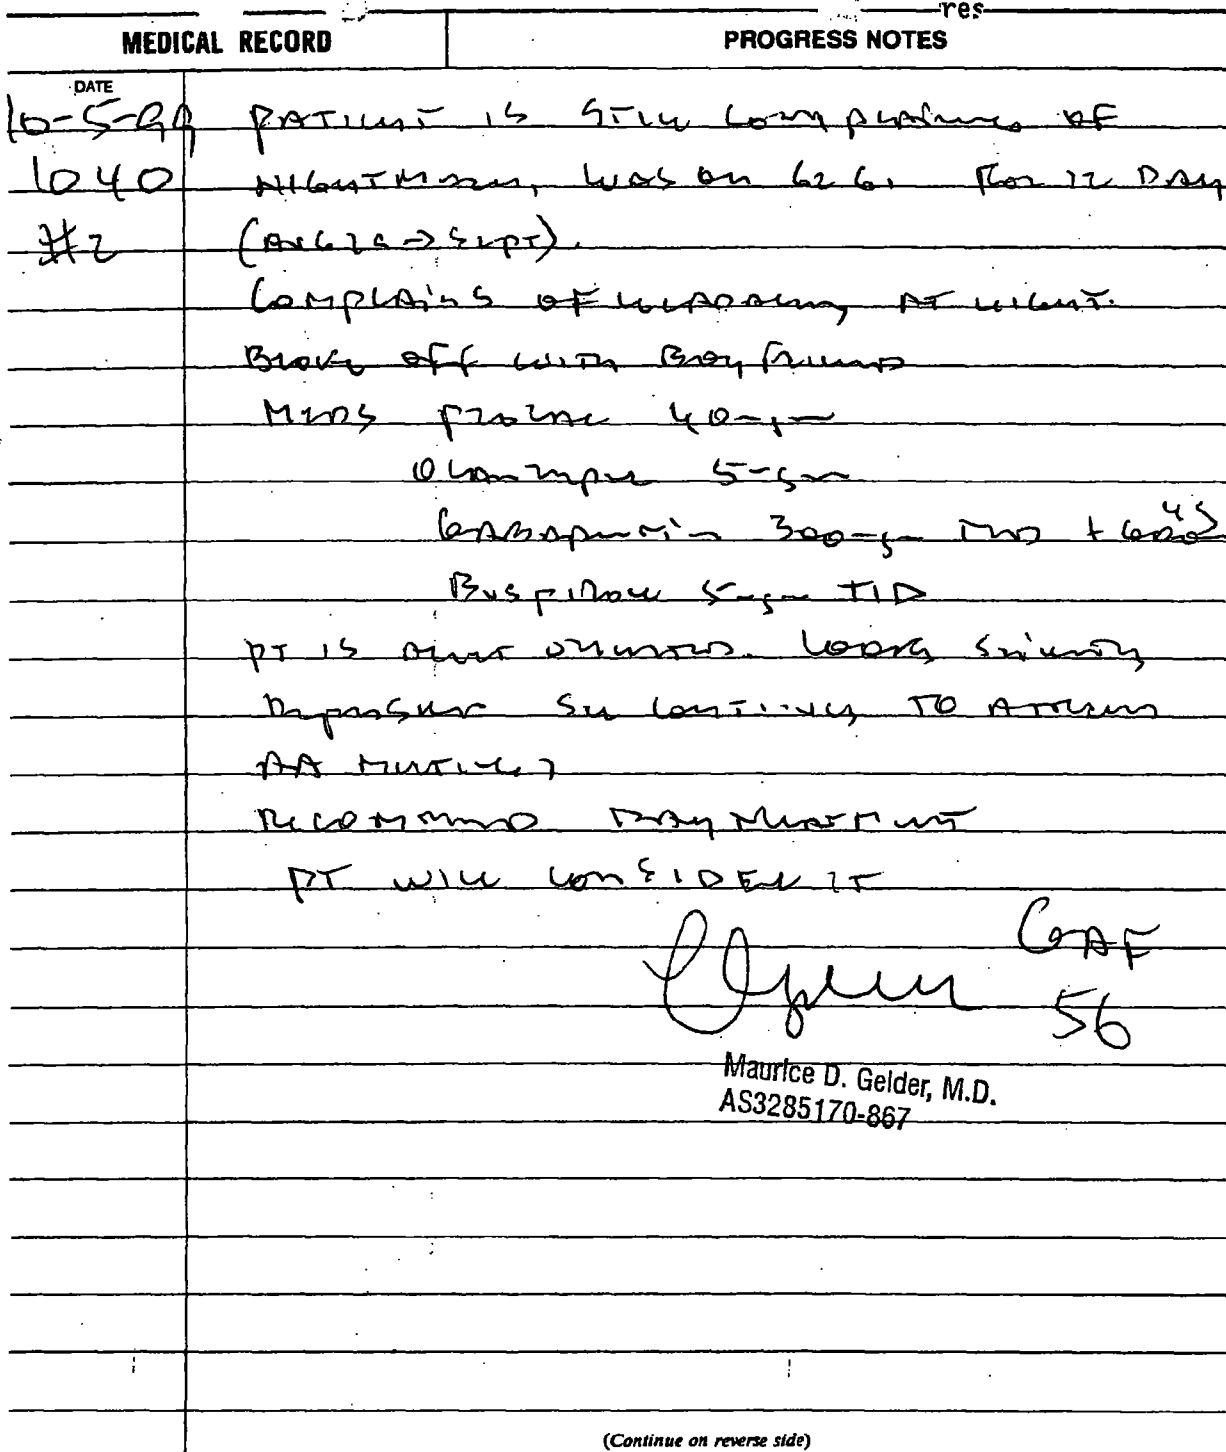 res
MEDICAL RECORD
PROGRESS NOTES
DATE
10-5-99 PATIENT IS STILL COMPLAINING OF
1040 NIGHTMARES, WAS ON 626. FOR 12 DAY
#2 (AUG 29 -> SEPT).
COMPLAINS OF HEADACHES AT NIGHT.
BROKE OFF WITH BOYFRIEND
MEDS PROZAC 40 mgm
OLANZAPINE 5 mgm
GABAPENTIN 300 mgm + 600 HS
BUSPIRONE 5 mgm TID
PT IS ALERT ORIENTED. LOOKS
DEPRESSED SHE CONTINUES TO ATTEND
AA MEETINGS
RECOMMEND DAY TREATMENT
PT WILL CONSIDER IT
GAF
56
Maurice D. Gelder, M.D.
AS3285170-867
(Continue on reverse side)